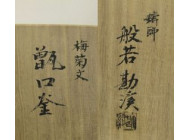 梅菊文
甑口釜
鋳師
般若勘渓